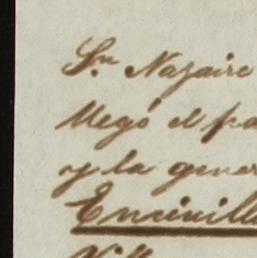 Sn. Nazaire
llegó el pa
y la gener
Encinill